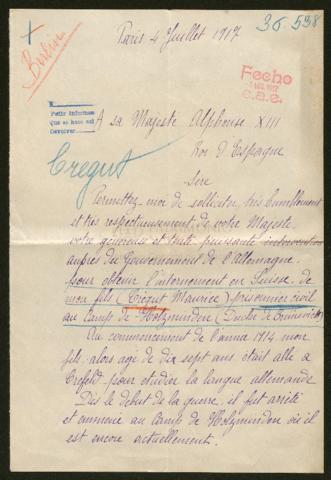 36,538
Paris 4 Juillet 1917
Berlin
Fecho
c.a.e.
Pedir informes
que se hace asi
A sa Majesté Alphonse XIII
Roi d'Espagne
Crégut
Sire
Permettez-moi de solliciter très humblement
et très respectueusement de votre Majesté
votre généreuse et toute puissante intervention
auprès du Gouvernement de l'Allemagne
pour obtenir l'internement en Suisse de
mon fils (Crégut Maurice) prisonnier civil
au camp de Holzminden (Duché de Brunswick)
Au commencement de l'année 1914 mon
fils alors agé de dix sept ans était allé à
Crefeld pour étudier la langue allemande
Dès le début de la guerre, il fut arrêté
et emmené au camp de Holzminden où il
est encore actuellement.